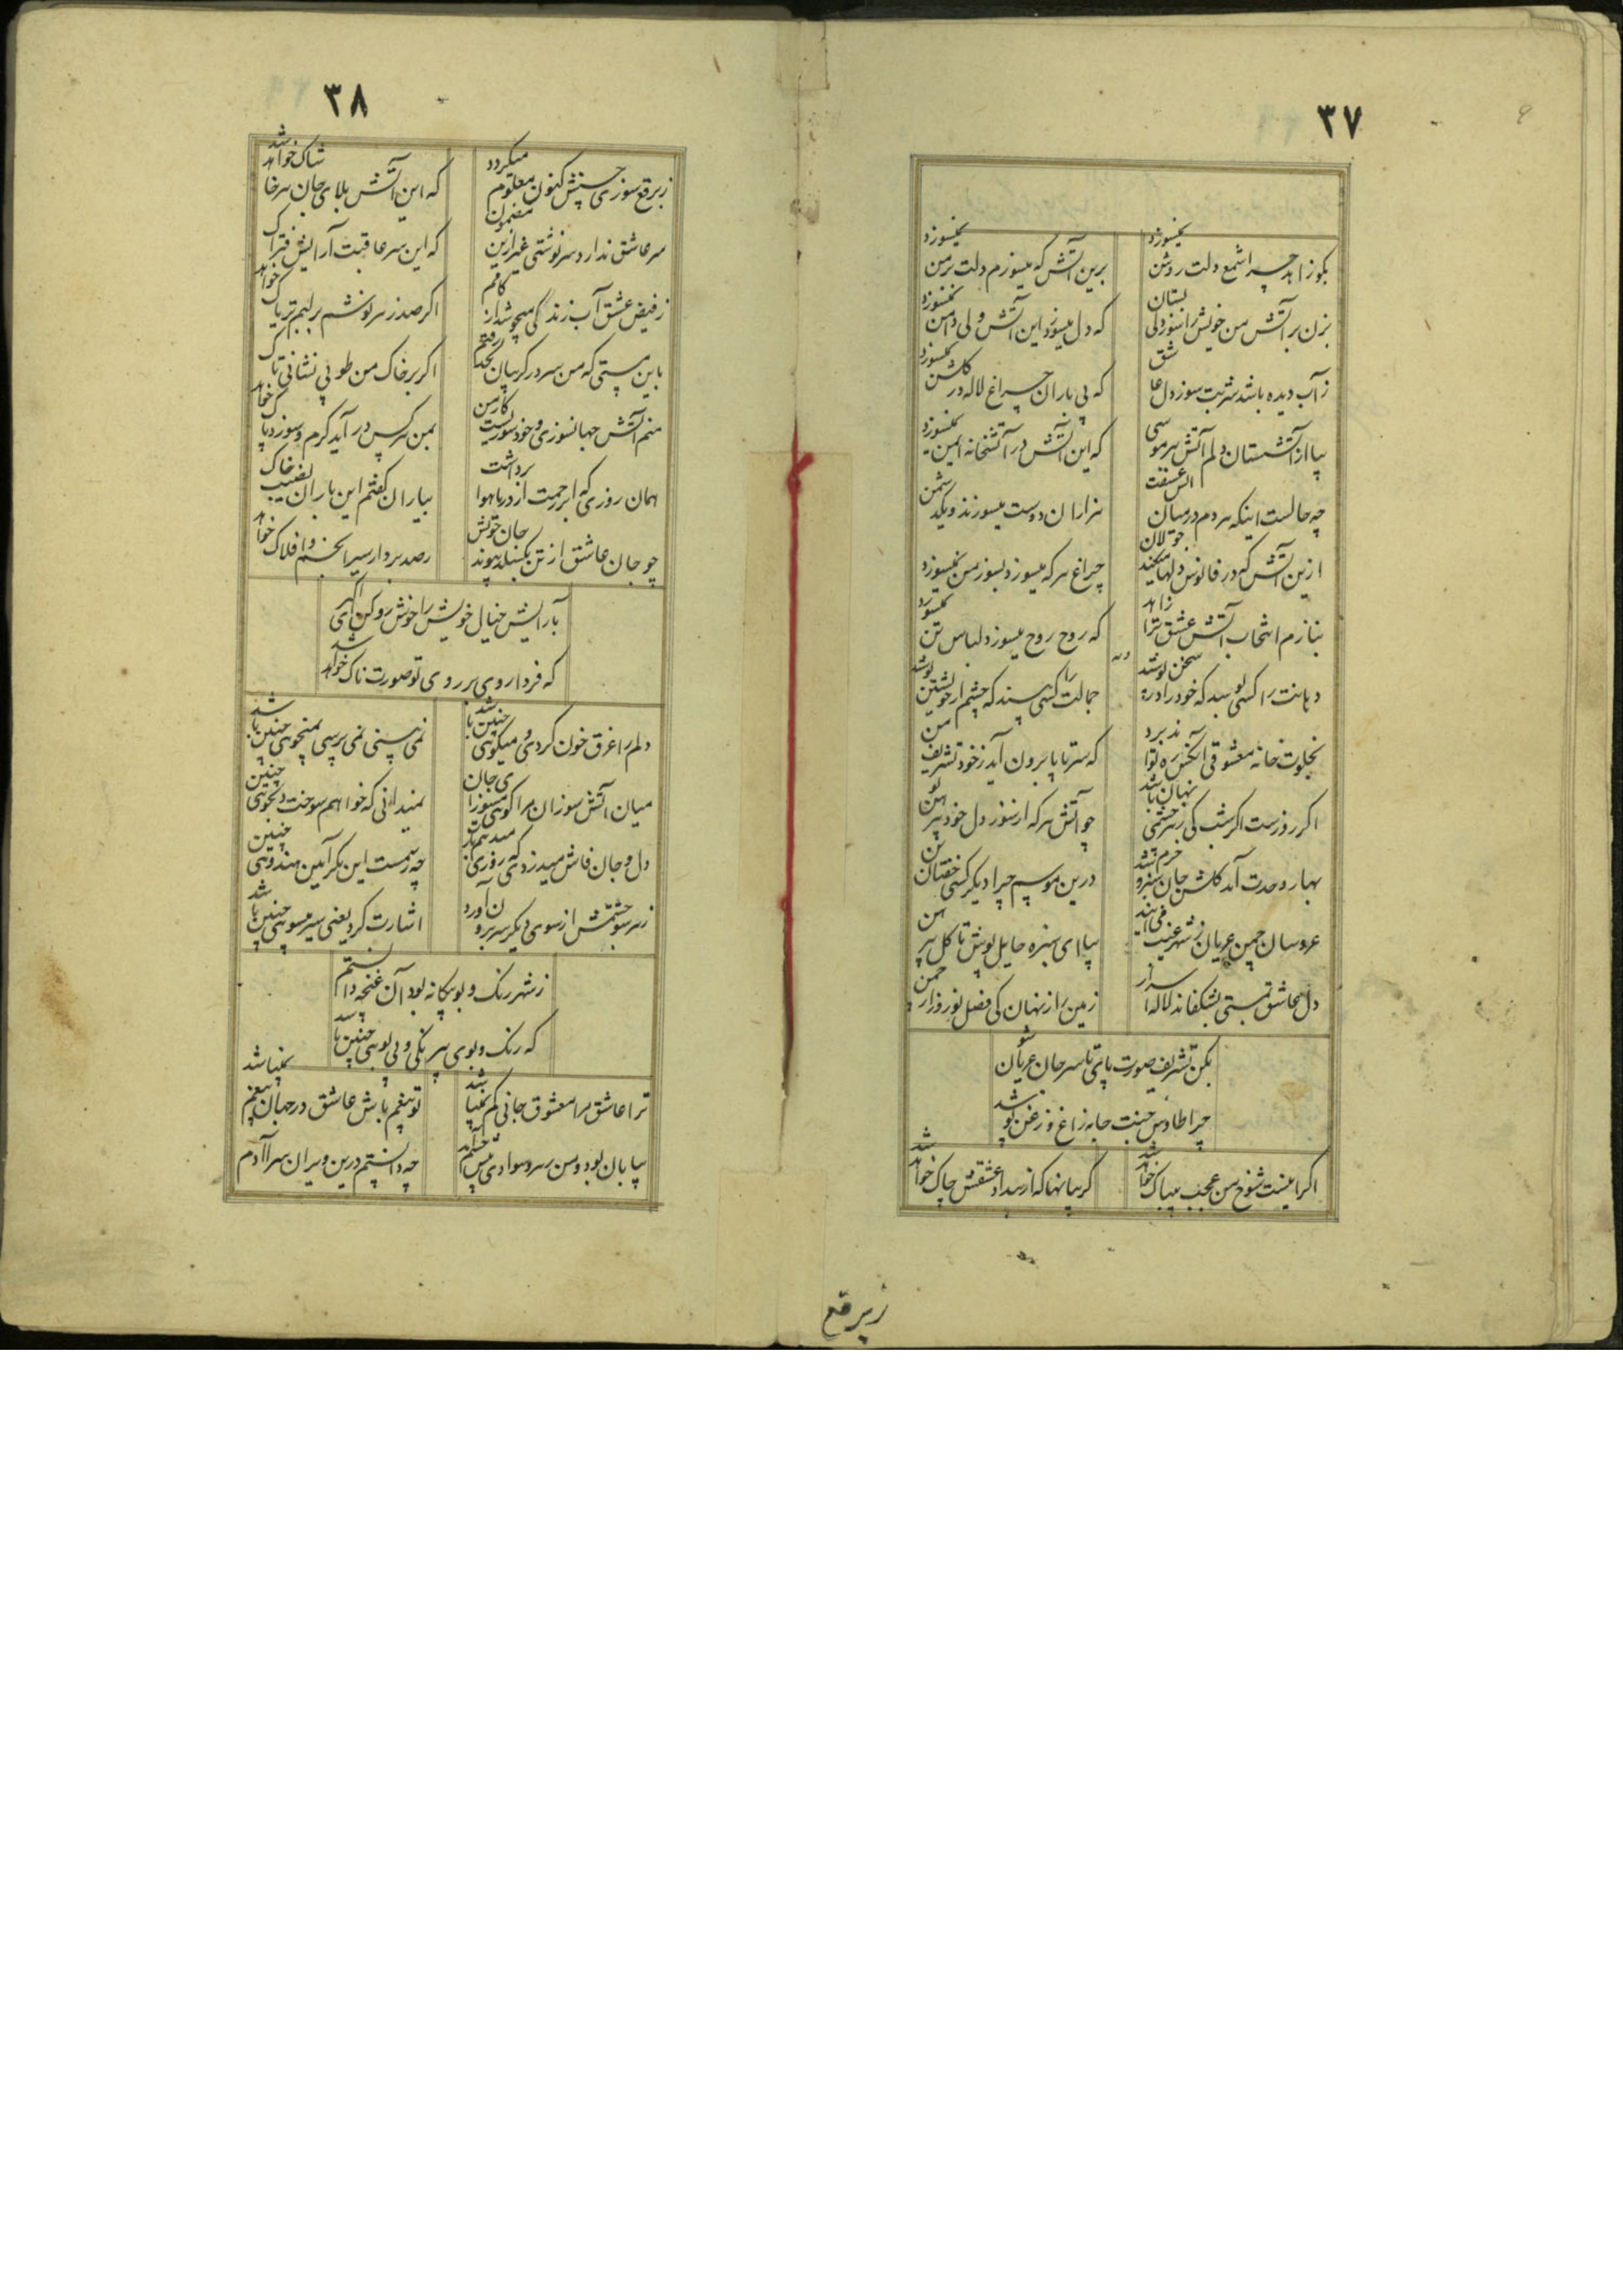 ۳۷
بگو زاهد چرا شمع دلت روشن نمیسوزد
برین آتش که میسوزم دلت بر من نمیسوزد
بزن بر آتش من خویش را سوز دلی بستان
که دل میسوزد این آتش ولی دامن نمیسوزد
ز آب دیده باشد شربت سوز دل عاشق
که بی باران چراغ لاله در گلشن نمیسوزد
بیا از آتشستان دلم آتش بر موسی
که این آتش در آتشخانه ایمن نمیسوزد
چه حالست اینکه مردم در میان آتش عشقت
هزاران دوست میسوزند و یک دشمن
ازین آتش که در فانوس دلها میکند جولان
چراغ هر که میسوزد بسوز من نمیسوزد
بنازم انتخاب آتش عشق ترا زاهد
که روح روح میسوزد لباس تن نمیسوزد
وله
دهانت را کسی بوسد که خود را در سخن پوشد
جمالت را کسی بیند که چشم از خویشتن پوشد
بخلوت خانه معشوقی آنکس ره تواند برد
که سر تا پا برون آید ز خود تشریف من
اگر روزست اگر شب کی ز هر چشمی نهان باشد
چو آتش هر که از سوز دل خود پیرهن
بهار وحدت آمد گلشن جان سبز و خرم شد
درین موسم چرا دیگر کسی خفتان تن
عروسان چمن عریان ز شهر غیب می آیند
بیا ای سبزه حایل پوش تا گل پیرهن
دل عاشق تبستی بشکفاند لاله اسرار
زمین راز نهان کی فصل نوروز از چمن
بکن تشریف صورت پای تا سر جان عریان شو
چرا طاوس جنت جامه زاغ و زغن پوشد
اگر اینست شوخ من عجب بیباک خواهد شد
گریبانها که از بیداد عشقش چاک خواهد شد
ز برقع
۳۸
ز برقع سوزی حسنش کنون معلوم میگردد
که این آتش بلای جان هر خاشاک خواهد شد
سر عاشق ندارد سرنوشتی غیر ازین مضمون
که این سر عاقبت آرایش فتراک
ز فیض عشق آب زندگی میجوشد از کامم
اگر صد زهر نوشم بر لبم تریاک خواهد
باین مستی که من سر در گریبان لحد رفتم
اگر بر خاک من طوبی نشانی تاک
منم آتش جهانسوزی و خودسوزیست کار من
بمن هر کس درآید گرم و سوزد پاک خواهد
همان روزی که ابر رحمت از دریا هوا برداشت
بیاران گفتم این باران نصیب خاک
چو جان عاشق از تن بگسلد پیوند جان خویش
رصد بردار سیر انجم و افلاک خواهد
بآرایش خیال خویش را خوش رو کن ای اکبر
که فردا روی بر روی تو صورت ناک خواهد شد
دلم را غرق خون کردی و میگویی چنین باشد
نمی بینی نمی پرسی نمیجویی چنین باشد
میان آتش سوزان مرا گویی مسوز ای جان
نمیدانی که خواهم سوخت دلجویی چنین
دل و جان فاش میدزد که روزی میدهم
چه رسمست این مگر آیین هندویی چنین
ز هر سو جستمش از سوی دیگر سر برون آورد
اشارت کرد یعنی سیر هر سویی چنین باشد
ز شهر رنگ و بو بیگانه بود آن غنچه دانستم
که رنگ و بوی بیرنگی و بی بویی چنین باشد
ترا عاشق مرا معشوق جانی کم نمیباشد
تو بیغم باش عاشق در جهان بیغم نمیباشد
بیابان بود و من هر سو دوادی پیش
چه دانستم درین ویران سرا آدم